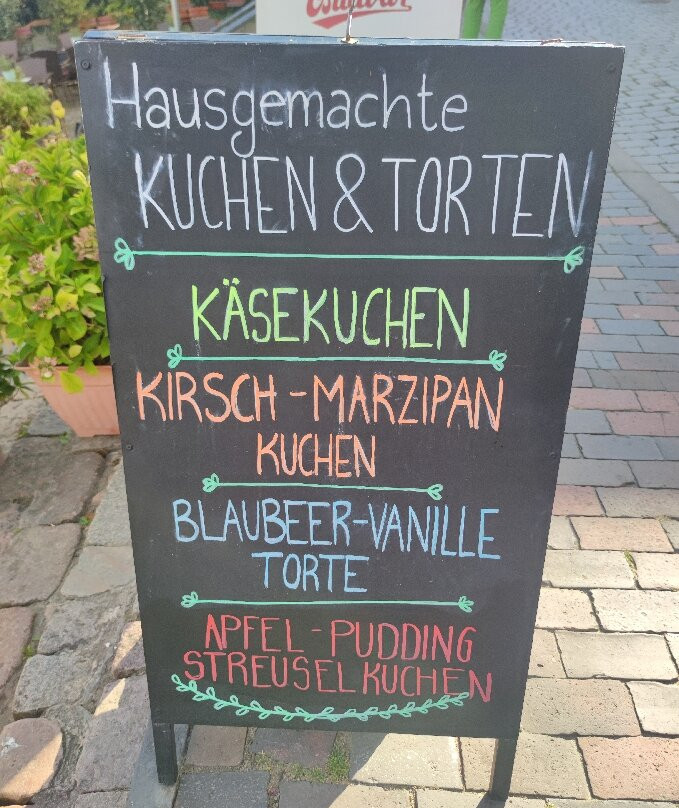 Hausgemachte
KUCHEN & TORTEN
KÄSEKUCHEN
KIRSCH-MARZIPAN
KUCHEN
BLAUBEER-VANILLE
TORTE
APFEL-PUDDING
STREUSELKUCHEN